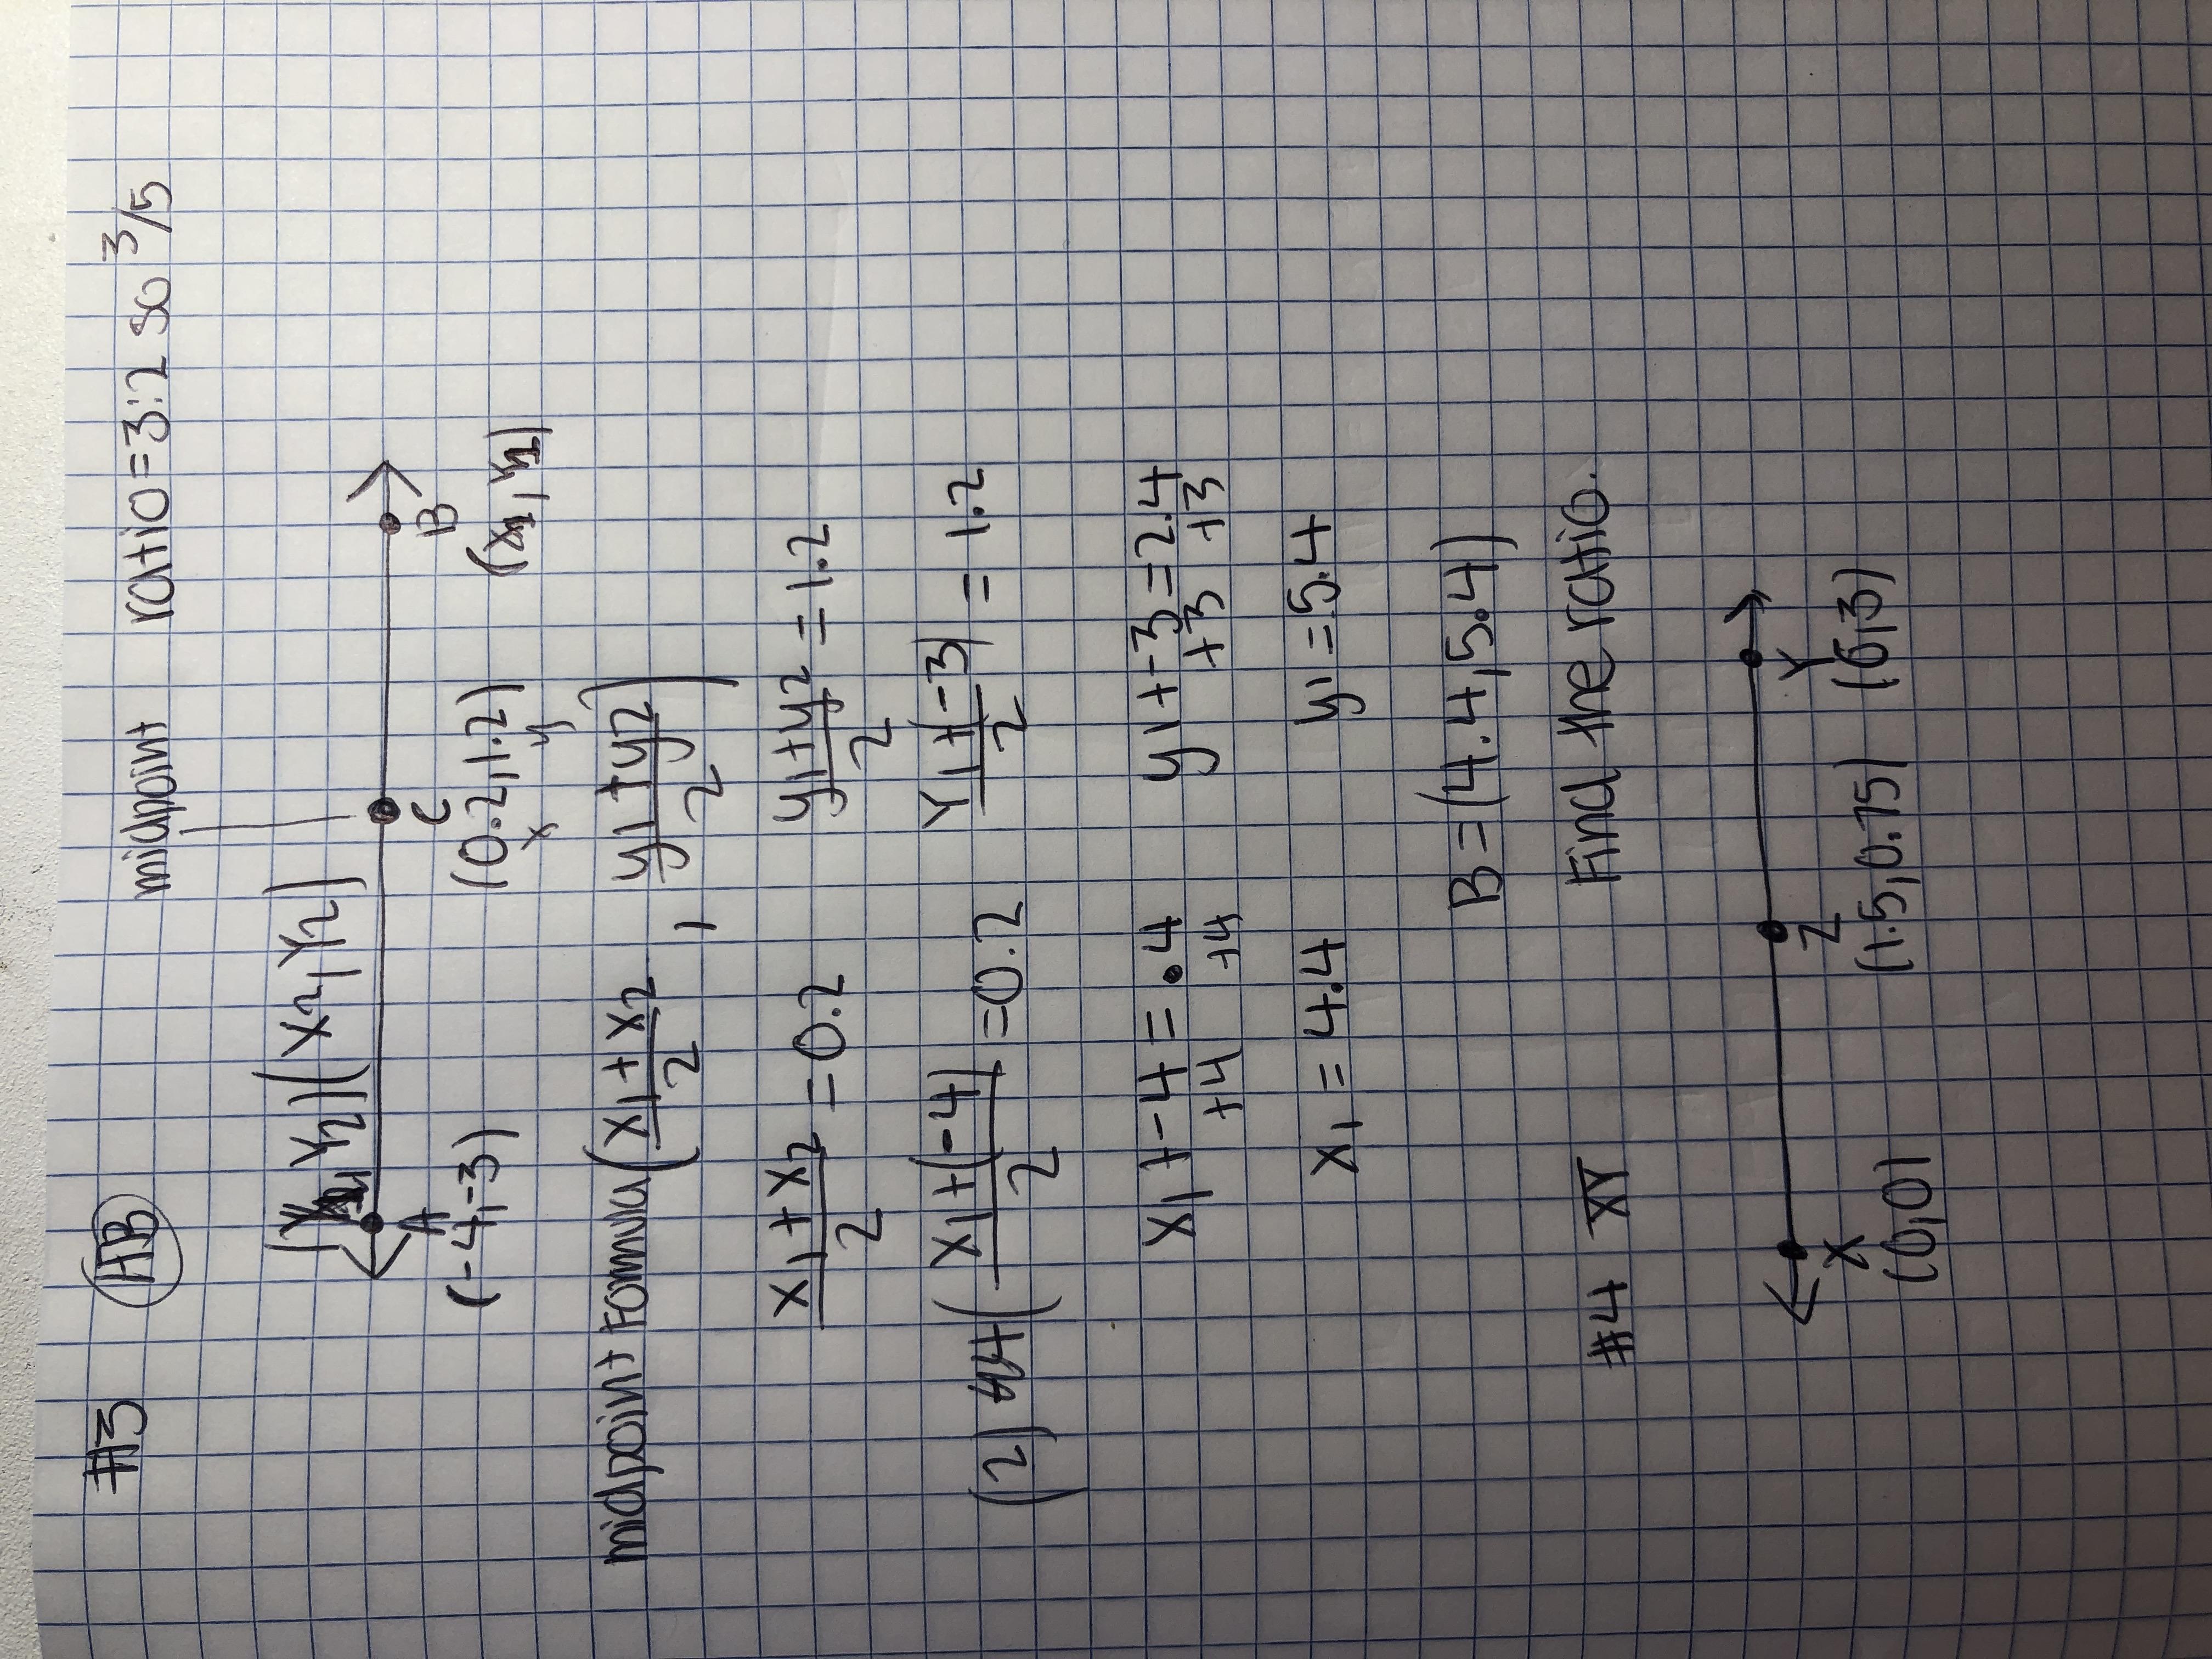 #3 AB midpoint ratio=3:2 so 3/5
(x1,y2)(x2,y2)
A C B
(-4,-3) (0.2,1.2) (x1,y1)
x y
midpoint formula (x1+x2/2 , y1+y2/2)
x1+x2/2 =0.2 y1+y2/2 =1.2
(2) (x1+(-4)/2 =0.2 y1+(-3)/2 =1.2
x1+-4= .4 y1+-3=2.4
+4 +4 +3 +3
x1=4.4 y1=5.4
B=(4.4,5.4)
#4 XY Find the ratio.
X Z Y
(0,0) (1.5,0.75) (6,3)